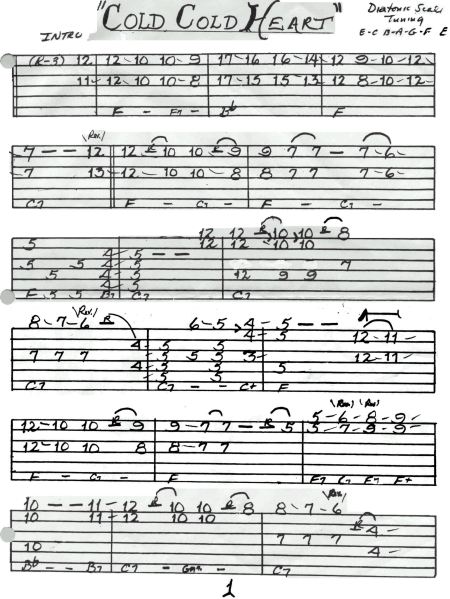 "COLD COLD HEART"
Diatonic Scale
Tuning
E-C B-A-G-F E
INTRO
(R-3) 12 12-10 10-9 17-16 16-14 12 9-10-12
11 12-10 10-8 17-15 15-13 12 8-10-12
F - F7 - Bb F
\Rev./
7 - - 12 12 R 10 10 R 9 9 7 7 - 7-6
7 13 12 - 10 10 8 8 7 7 7-6
C7 F - C7 - F - C7 -
12 12 R 10 10 R 8
5 12 12 10 10
4 5 - -
5 5 4 5 7
5 4 5 12 9 9
4 5
F 5 5 B7 C7 C7
\Rev./
8-7-6 R 6-5 4 - 5 - -
4 5 5 4 5 12-11
7 7 7 5 5 5 3 12-11
4 5 5 5
3 5 5
C7 C7 - - C+ F
\Rev./ \Rev./
5-6-8-9
12-10 10 R 9 9-7 7 - R 5 5-7-9-9
12-10 10 8 8-7 7
F - C7 - F F7 C7 F7 F+
\Rev./
10 - - 11-12 R 10 10 R 8 8-7-6
10 11-12 10 10 R 4
7 7 7
10 4
Bb - - B7 C7 - Gm - C7
1